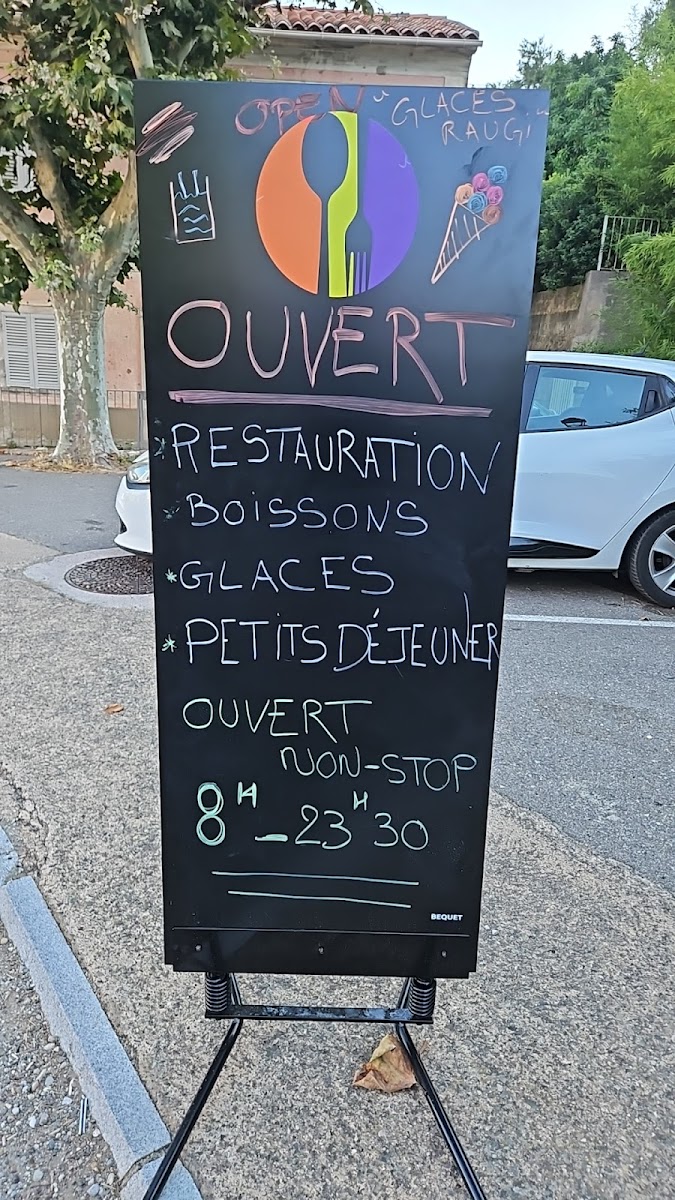 OPEN
"GLACES
RAUGI"
OUVERT
* RESTAURATION
* BOISSONS
* GLACES
* PETITS DÉJEUNER
OUVERT
NON-STOP
8H - 23H30
BEQUET